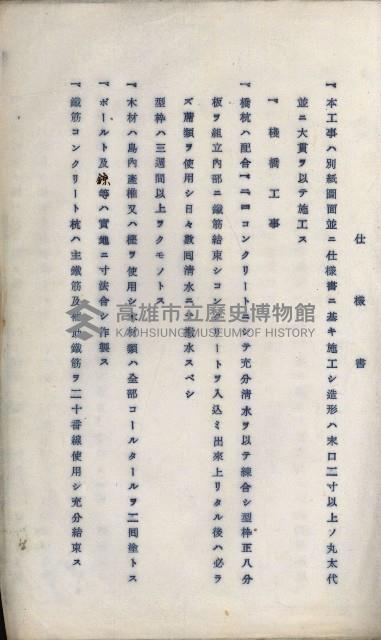 仕様書
一、本工事ハ別紙圖面並ニ仕様書ニ基キ施工シ造形ハ末口二寸以上ノ丸太代
並ニ大貫ヲ以テ施工ス
一、棧橋工事
一、橋杭ハ配合一二四コンクリートニシテ充分清水ヲ以テ練合シ型枠正八分
板ヲ組立內部ニ鐵筋結束シコンクリートヲ入込ミ出來上リタル後ハ必ラ
ズ蓆類ヲ使用シ日々數囘清水ニテ撒水スベシ
型枠ハ三週間以上ヲクモノトス
一、木材ハ島內產椎又ハ樫ヲ使用シ木材類ハ全部コールタールヲ二囘塗トス
一、ボールト及錬等ハ實地ニ寸法合シ作製ス
一、鐵筋コンクリート杭ハ主鐵筋及補助鐵筋ヲ二十番線使用シ充分結束ス
高雄市立歷史博物館
KAOHSIUNG MUSEUM OF HISTORY